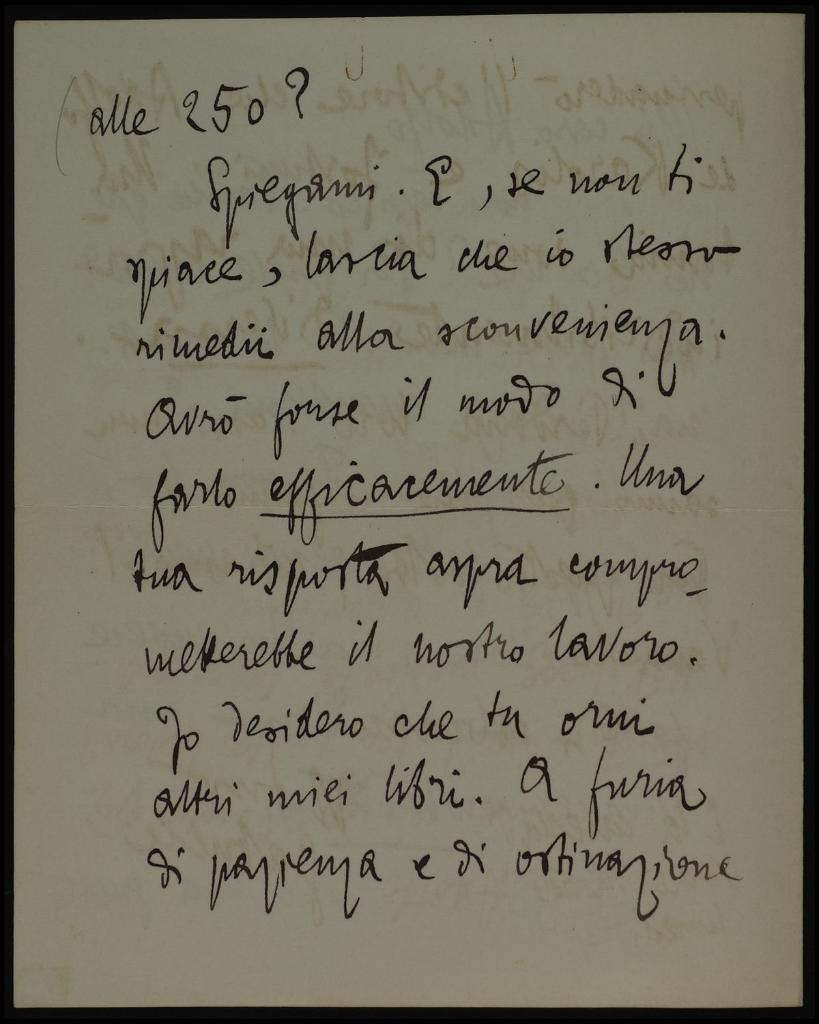 alle 250?
Spiegami. E, se non ti
spiace, lascia che io stesso
rimedii alla sconvenienza.
Avrò forse il modo di
farlo efficacemente. Una
tua risposta aspra compro-
metterebbe il nostro lavoro.
Io desidero che tu orni
altri miei libri. A furia
di pazienza e di ostinazione